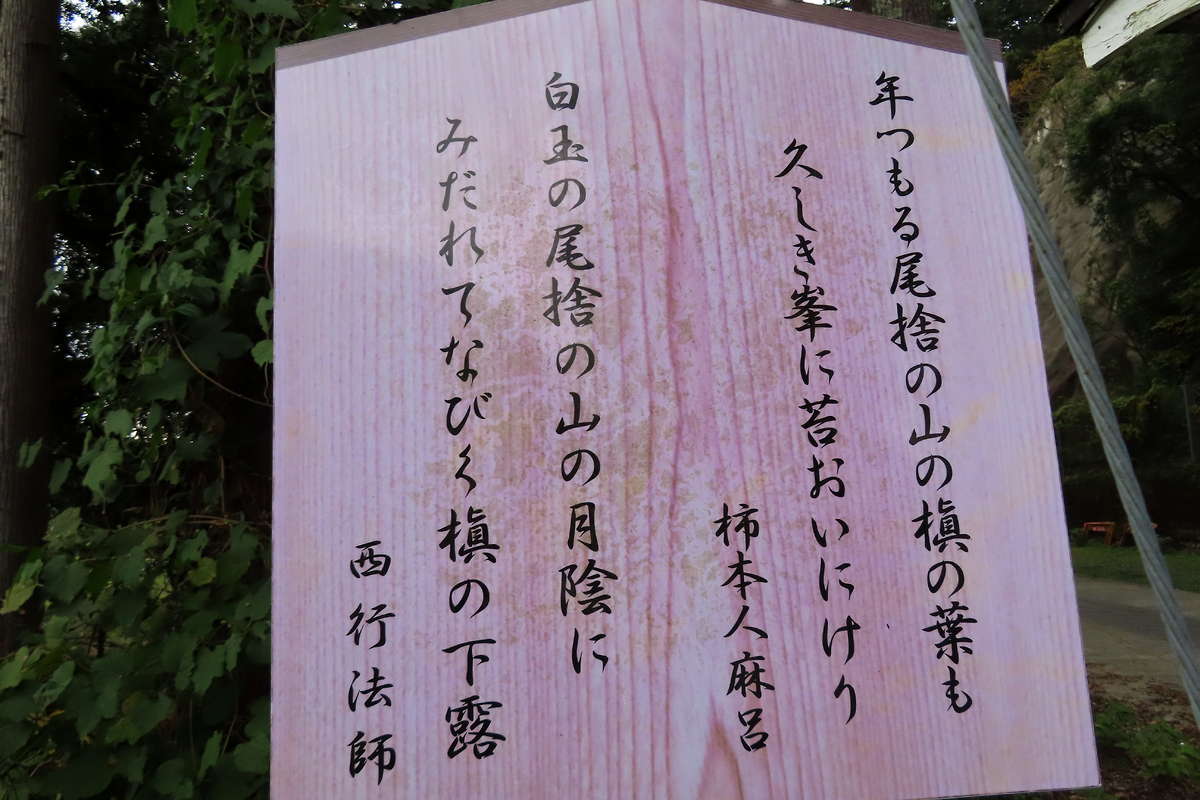 年つもる尾捨の山の槇の葉も
久しき峯に苔おいにけり
柿本人麻呂
白玉の尾捨の山の月陰に
みだれてなびく槇の下露
西行法師